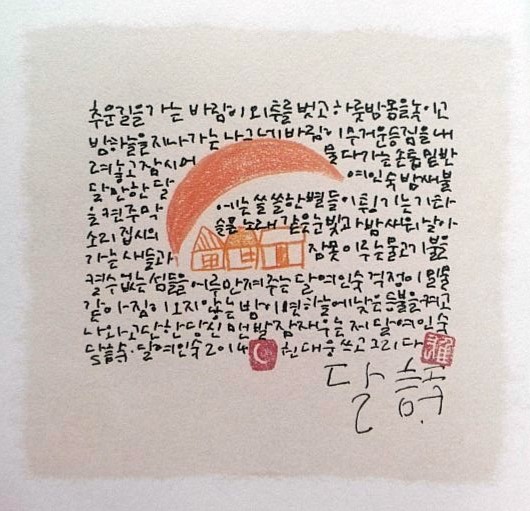 추운길을가는 바람이 외투를 벗고 하룻밤몸을녹이고
밤하늘을지나가는 나그네 바람이 무거운등짐을 내
려놓고 잠시쉬어 물다가는 손톱밑반
달만한 달 여인숙 밤새불
을켠주막 에는쓸쓸한별들이튕기는기타
소리 집시의 슬픈노래 같은눈빛과 밤새워날아
가는 새들과 잠못이루는물고기불을
켤수없는섬들을 어루만져주는달여인숙 걱정이밀물
같아 잠이오지않는밤이면하늘에낮은등불을켜고
나와고단한당신 맨발잠재우는 저 달여인숙
달여인숙 2014 권대웅 쓰고그리다
달